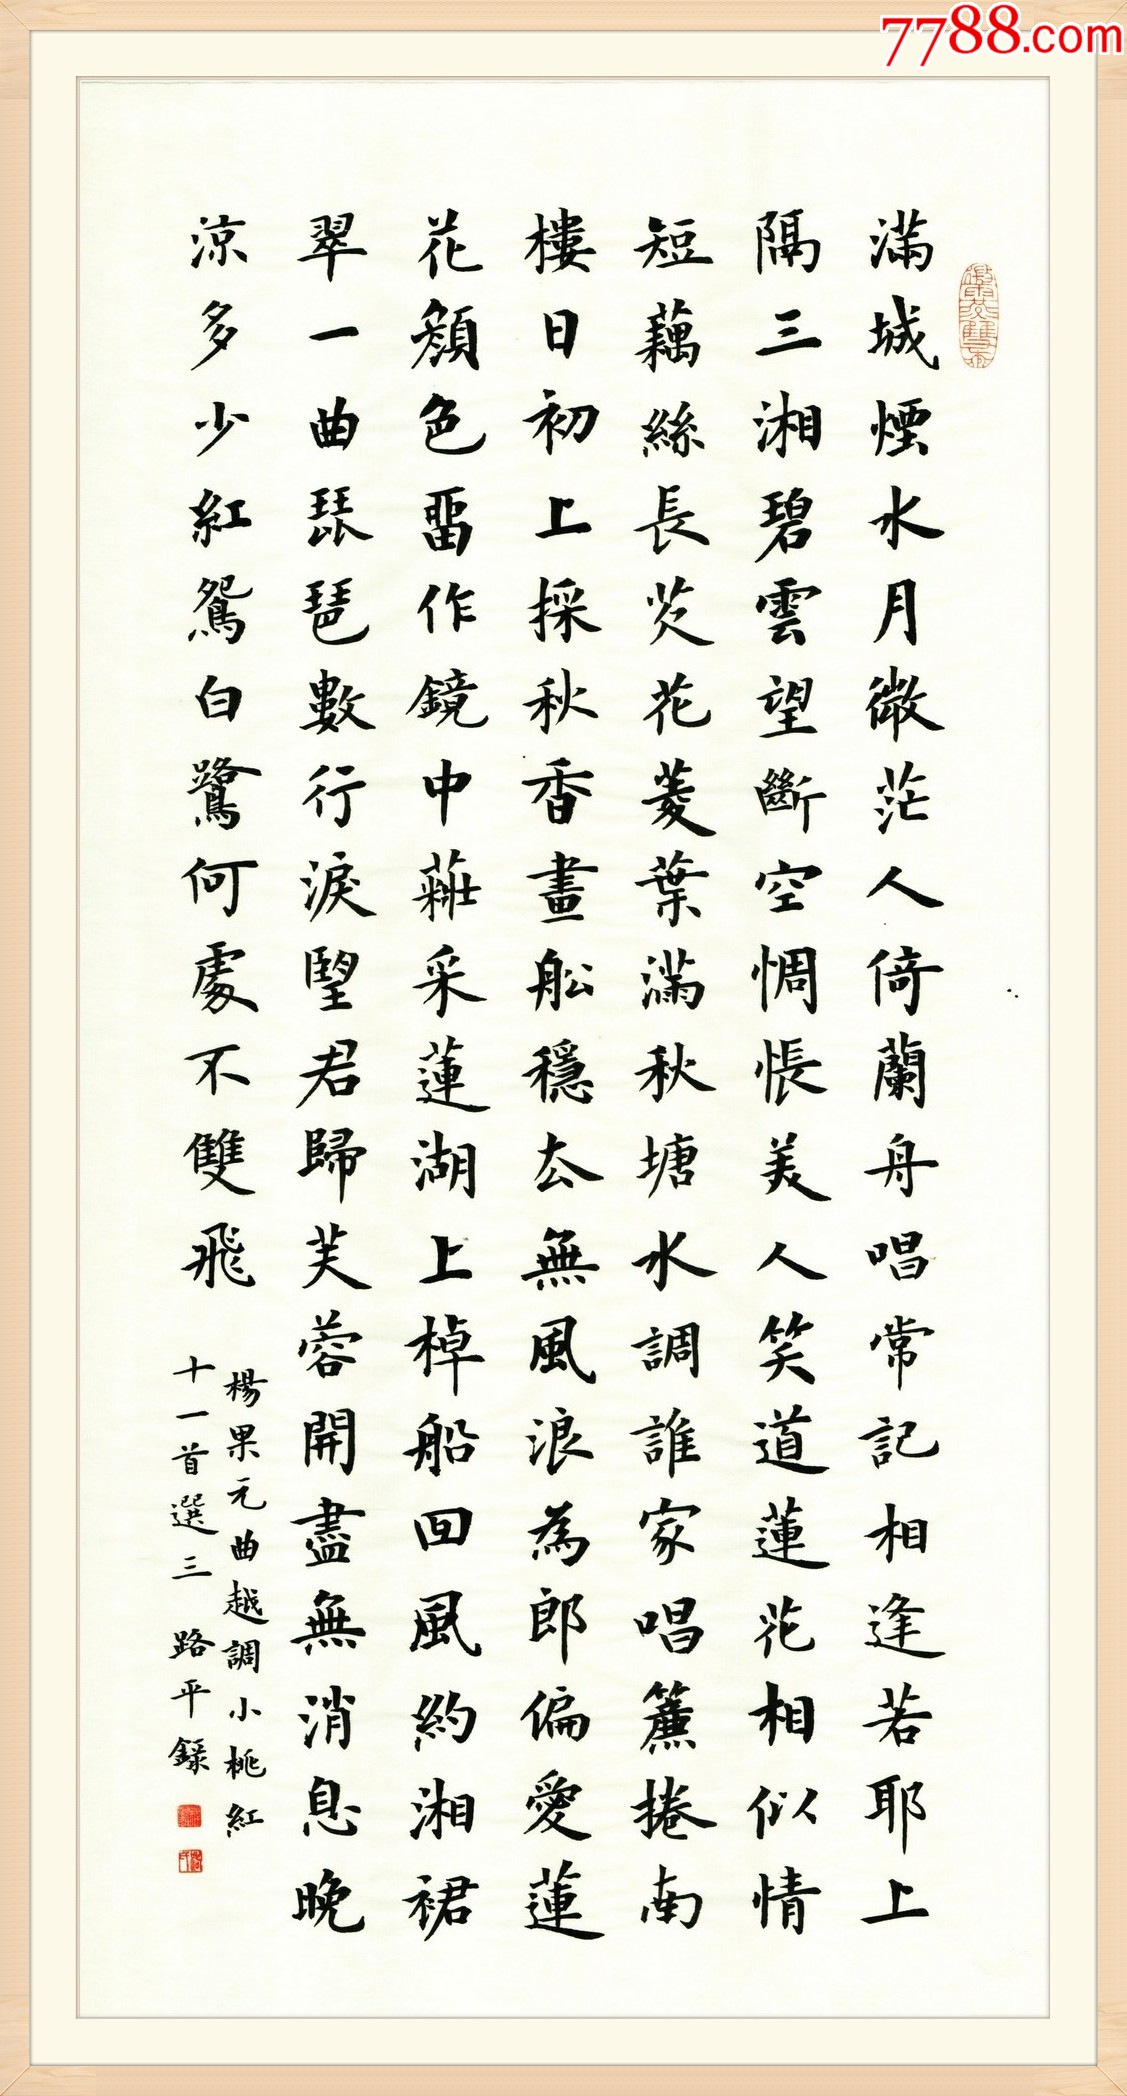 7788.com
滿城煙水月微茫人倚蘭舟唱常記相逢若耶上
隔三湘碧雲望斷空惆悵美人笑道蓮花相似情
短藕絲長芡花菱葉滿秋塘水調誰家唱簾捲南
樓日初上採秋香畫舩穩去無風浪為郎偏愛蓮
花顏色畱作鏡中粧采蓮湖上棹船回風約湘裙
翠一曲琵琶數行淚朢君歸芙蓉開盡無消息晚
涼多少紅鴛白鷺何處不雙飛
楊果元曲越調小桃紅
十一首選三 路平錄